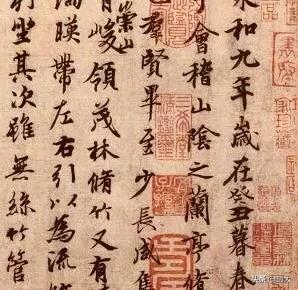 永和九年歲在癸丑暮春
于會稽山陰之蘭亭脩
羣賢畢至少長咸集
有崇山峻領茂林脩竹又有
湍暎帶左右引以為流
列坐其次雖無絲竹管